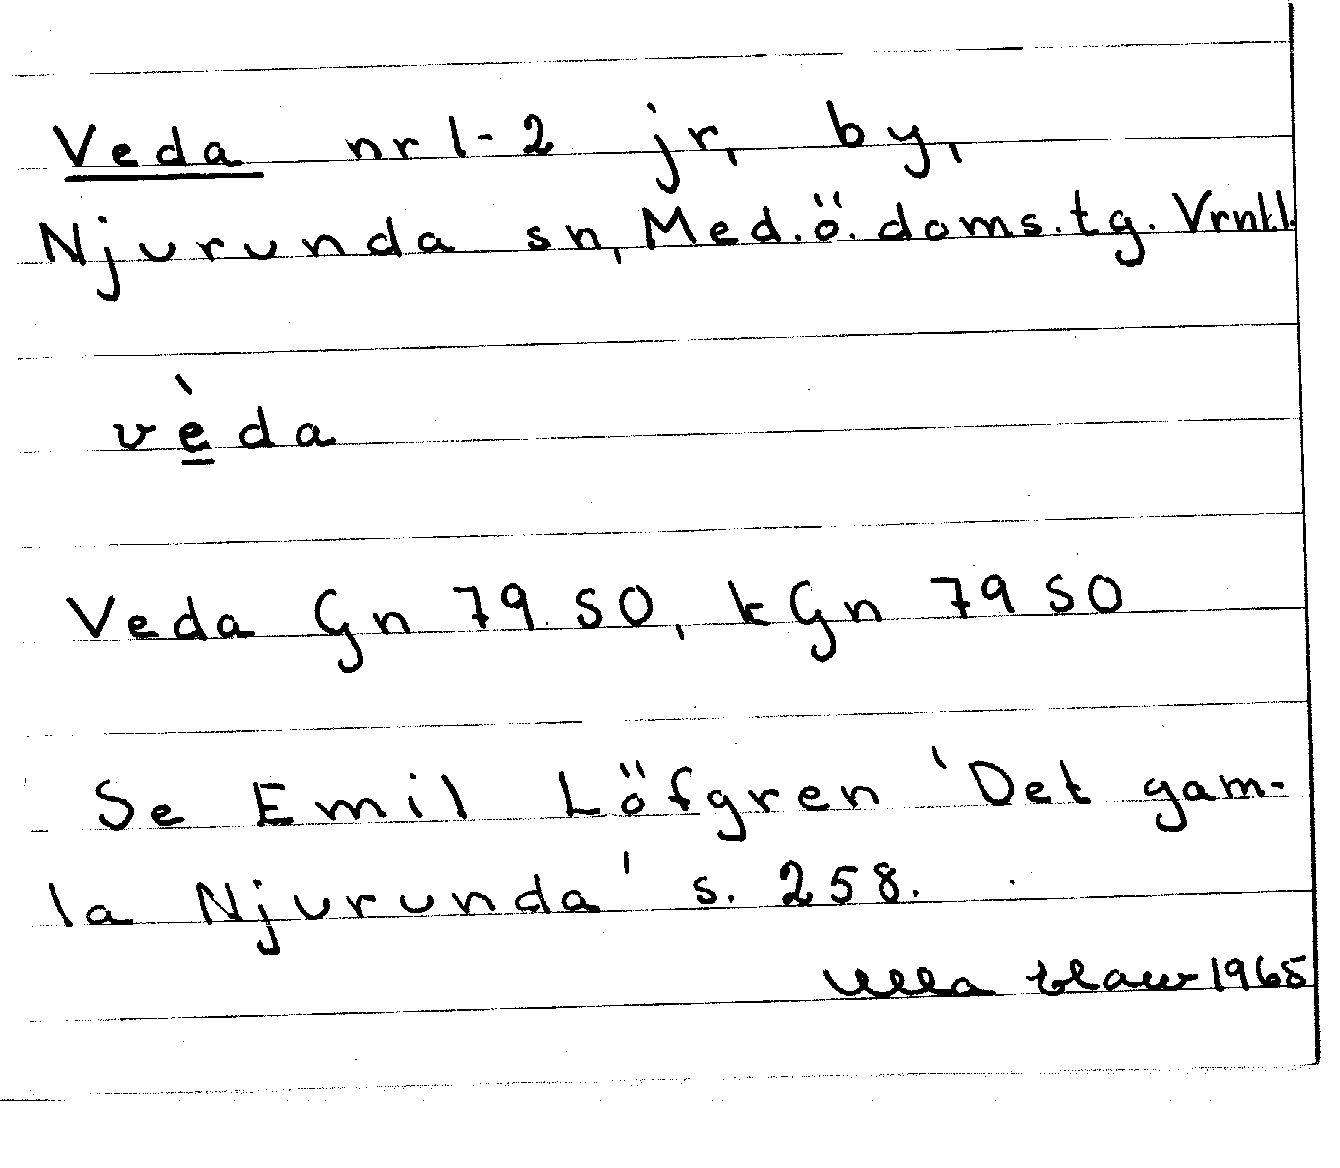 Veda nr 1-2 jr, by,
Njurunda sn, Med.ö.doms.tg. Vrnl.l.
vèda
Veda Gn 79 SO, kGn 79 SO
Se Emil Löfgren 'Det gam-
la Njurunda' s. 258.
Ulla 1965